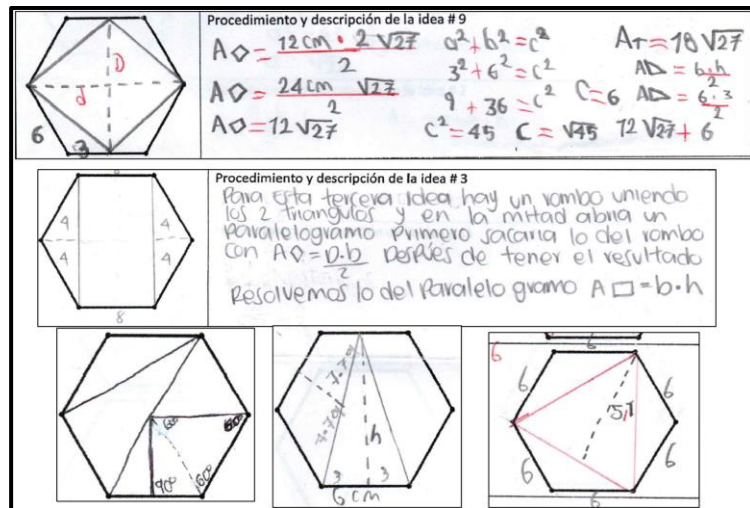 Procedimiento y descripción de la idea # 9
A◇ = 12 cm · 2 √27 / 2
A◇ = 24 cm √27 / 2
A◇ = 12 √27
a² + b² = c²
3² + 6² = c²
9 + 36 = c²
c² = 45
C = 6
C = √45
AT = 18 √27
A = b·h / 2
A = 6·3 / 2
12 √27 + 6
D
d
6
3
Procedimiento y descripción de la idea # 3
Para Esta tercera idea hay un rombo uniendo
los 2 triangulos y en la mitad abria un
Paralelogramo Primero sacaria lo del rombo
con A◇ = D·b / 2 Despues de tener el resultado
Resolvemos lo del Paralelo gramo A □ = b·h
4
4
4
4
8
90°
60°
h
3
3
6 cm
6
6
6
6
6
6
6